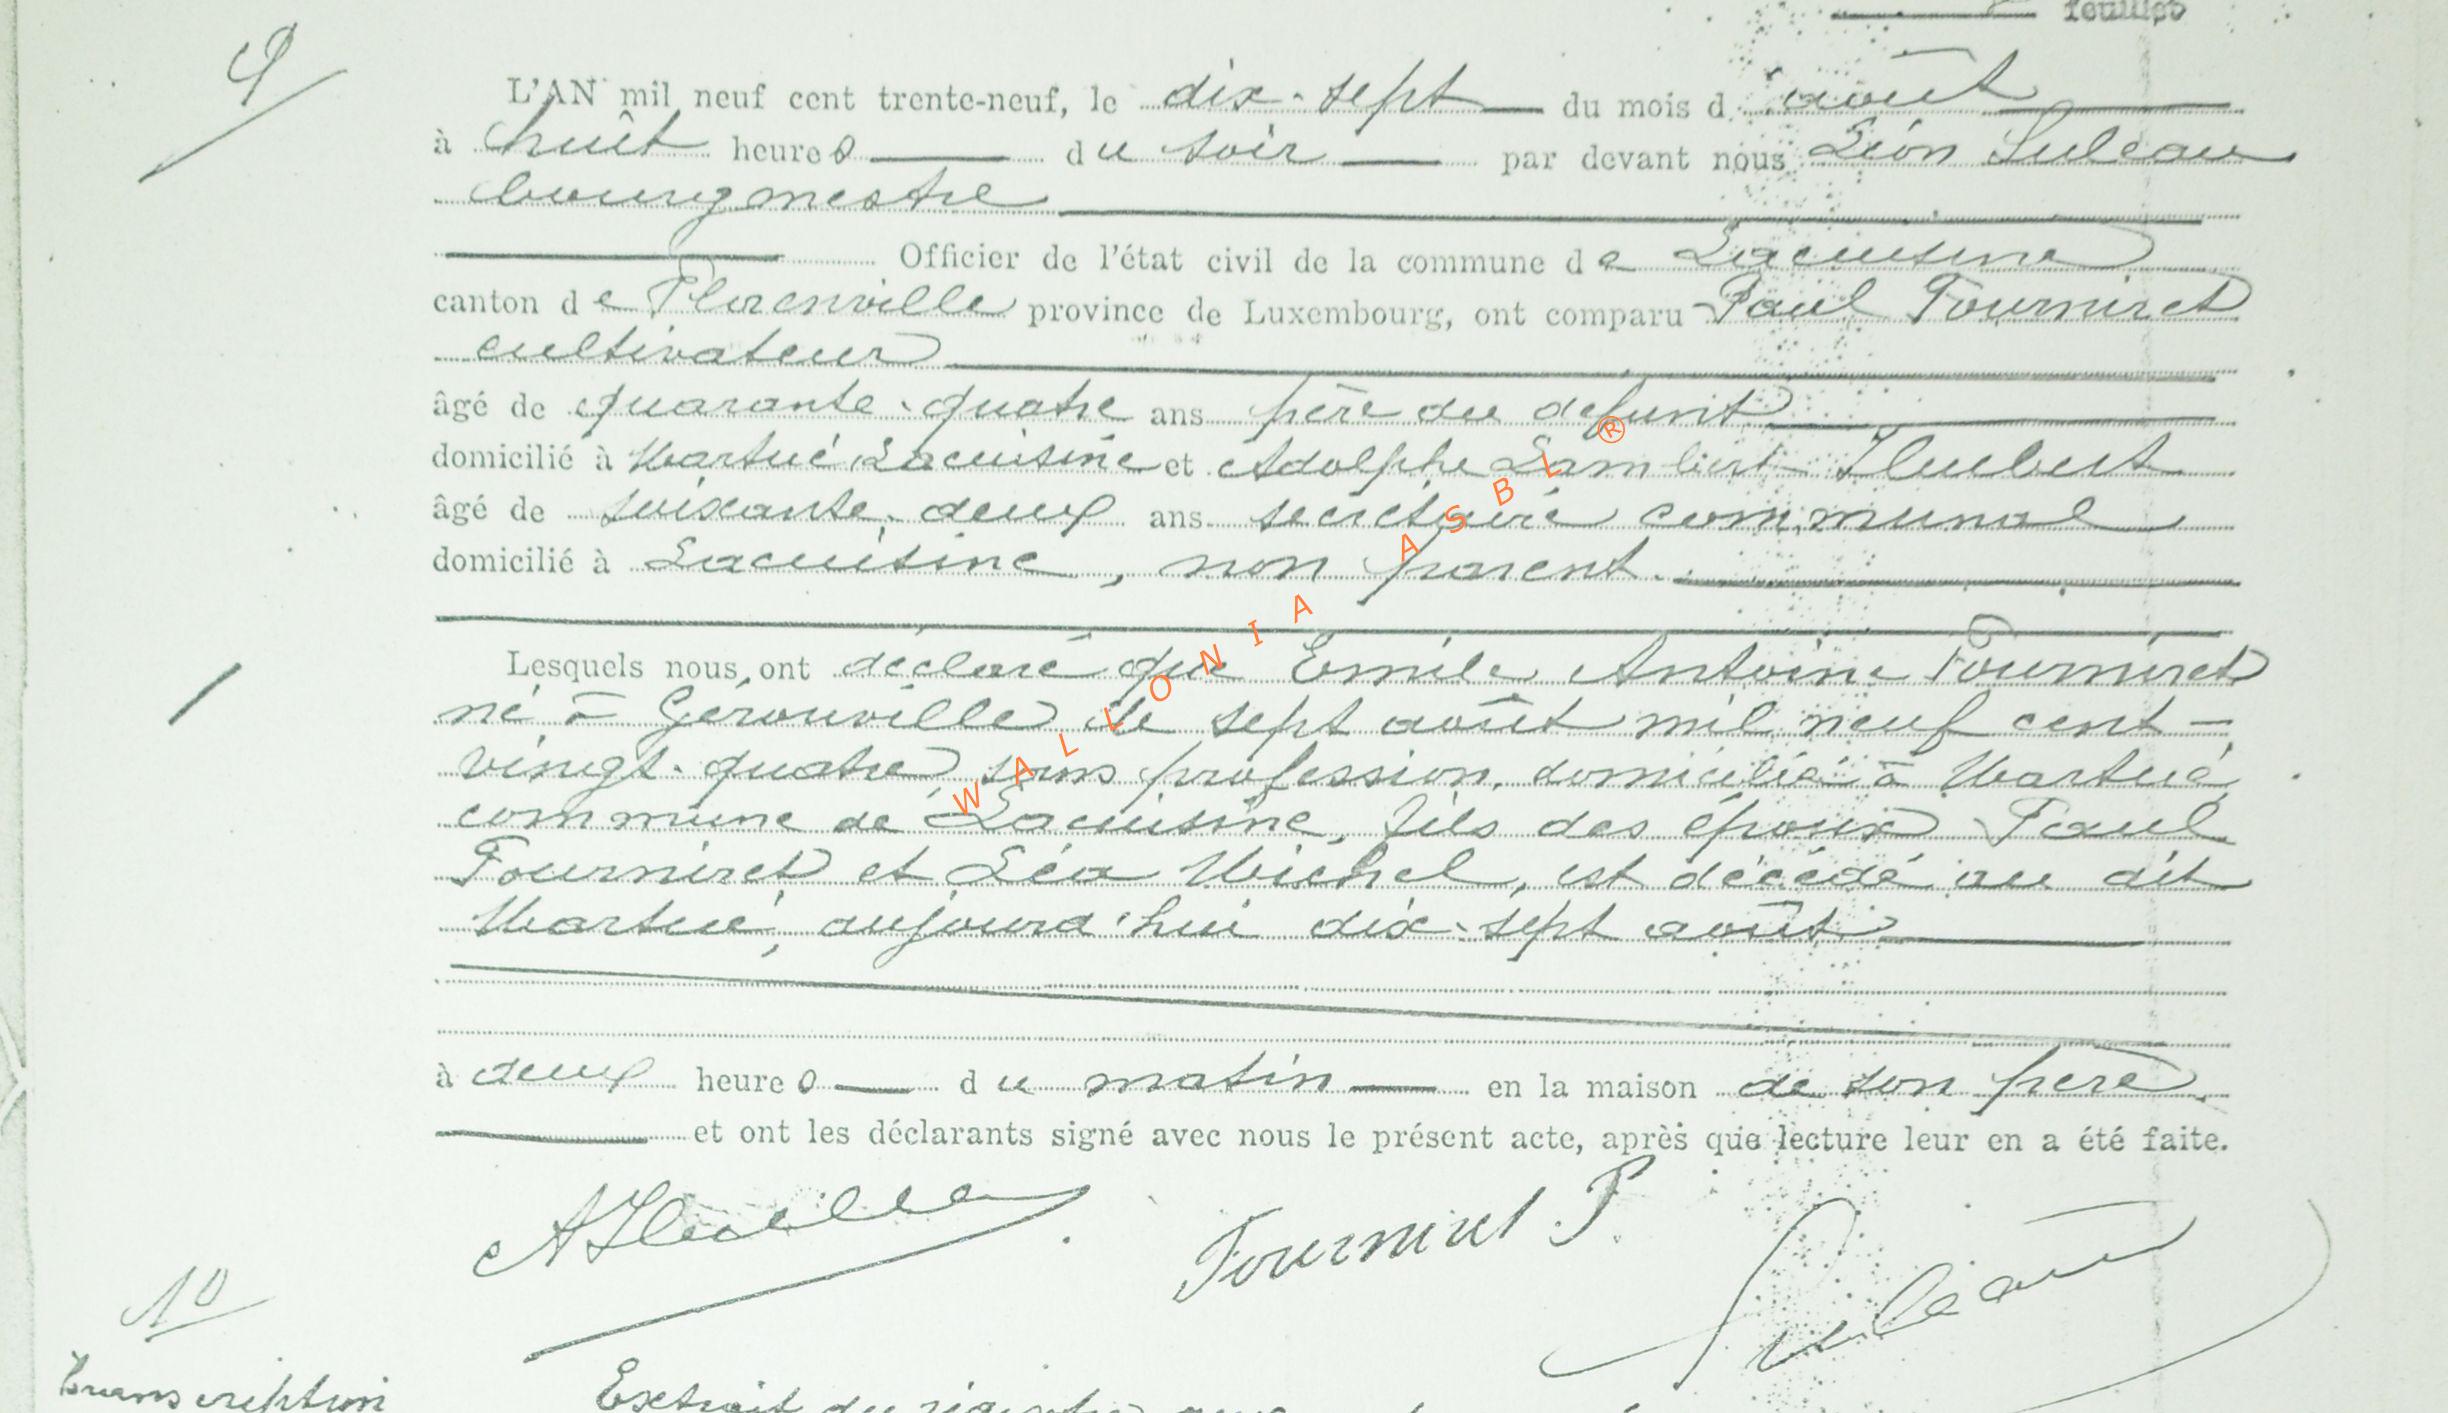 feuillet
9
L'AN mil neuf cent trente-neuf, le dix-sept du mois d août
à huit heures du soir par devant nous Léon Suleau
bourgmestre
Officier de l'état civil de la commune de Lacuisine
canton de Florenville province de Luxembourg, ont comparu Paul Fourniret
cultivateur
âgé de quarante-quatre ans père du défunt
domicilié à Martué Lacuisine et Adolphe Lambert
âgé de soixante-deux ans secrétaire communal
domicilié à Lacuisine, non parent.
Lesquels nous ont déclaré que Emile Antoine Fourniret
né à Gérouville le sept août mil neuf cent
vingt-quatre, sans profession, domicilié à Martué
commune de Lacuisine, fils des époux Paul
Fourniret et Léa Michel, est décédé au dit
Martué, aujourd'hui dix-sept août
à deux heures du matin en la maison de son père
et ont les déclarants signé avec nous le présent acte, après que lecture leur en a été faite.
Fourniret P.
Suleau
10
Transcription
Extrait du registre aux
WALLONIA ASBL ®